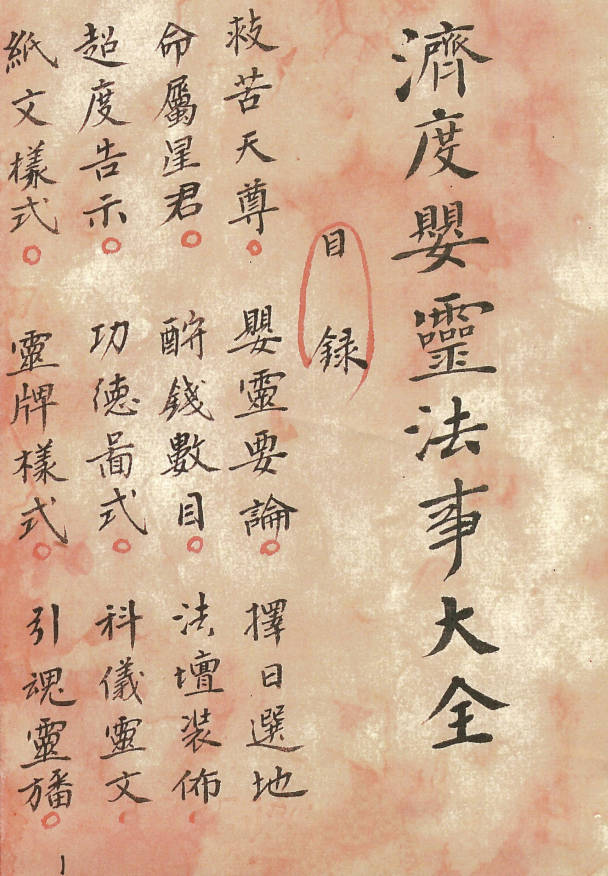 濟度嬰靈法事大全
目錄
救苦天尊。嬰靈要論。擇日選地
命屬星君。酧錢數目。法壇裝佈
超度告示。功德啚式。科儀靈文。
紙文樣式。靈牌樣式。引魂靈旛。
1